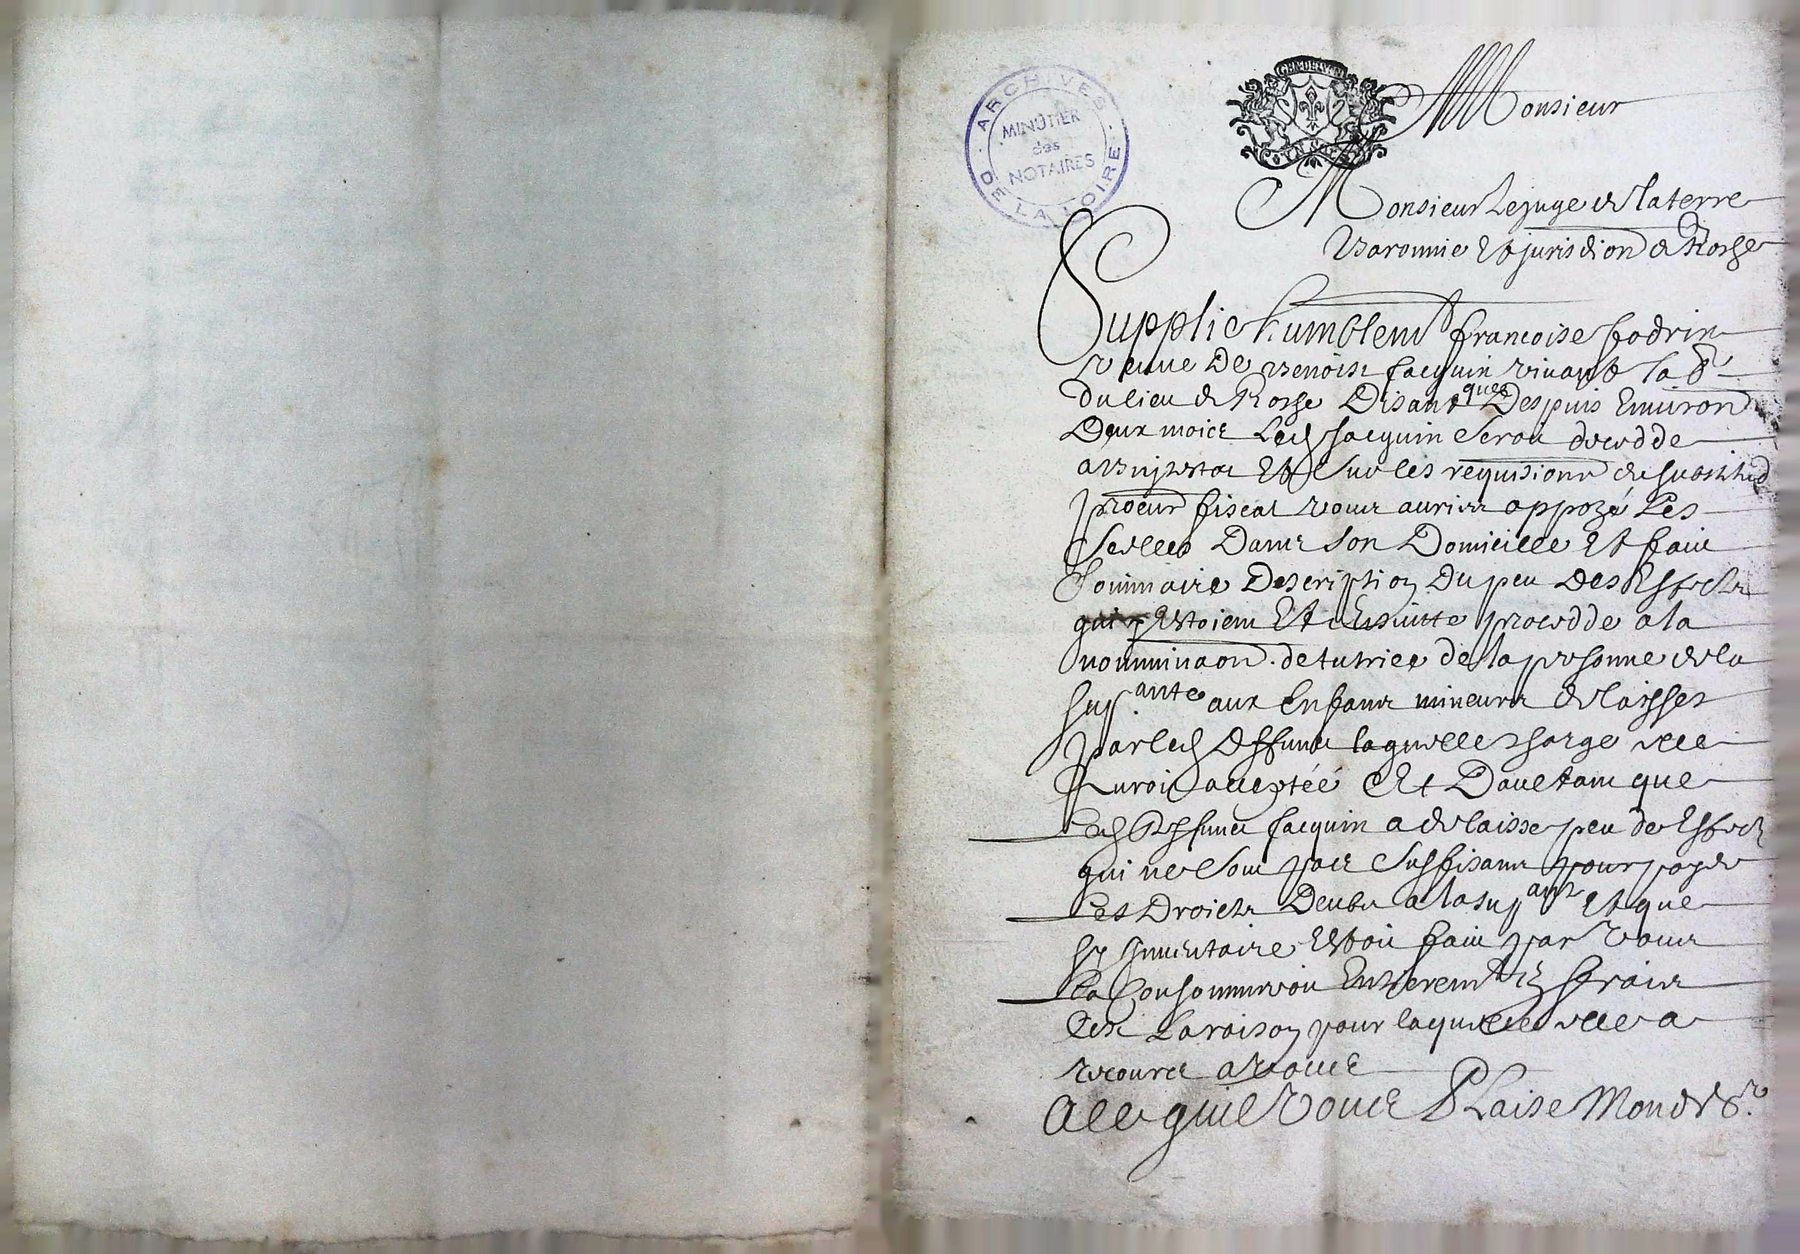 GEN. DE LYON
UN SOL
ARCHIVES DE LA LOIRE
MINUTIER
des
NOTAIRES
Monsieur
Monsieur Le juge de la terre
Baronnie Et jurisdion de
Supplie humblemt francoise
veuue De Benoist Jacquin viuant
du lieu de Disant que Despuis Enuiron
Deux mois Led Jacquin seroit decedde
Et sur les requisitions du substitud
procur fiscal vous auriez appozé Les
scelles Dans son Domicille Et faict
sommaire Description Du peu Des Effects
qui Estoient Et Ensuitte procedde a la
nominaon de tutrice de la personne de la
supante aux Enfans mineurs delaisses
par led deffunct laquelle charge elle
auroit acceptée Et Dautant que
Led Deffunct Jacquin a delaisse peu de Effects
qui ne sont pas suffisants pour payer
Les Droicts Deubs a la supante Et que
sy Inuentaire Estoit faict par vous
La consommeroit Entierement En fraix
Cest La raison pour laquelle elle a
recours a vous
A ce quil Vous Plaise Mond Sr